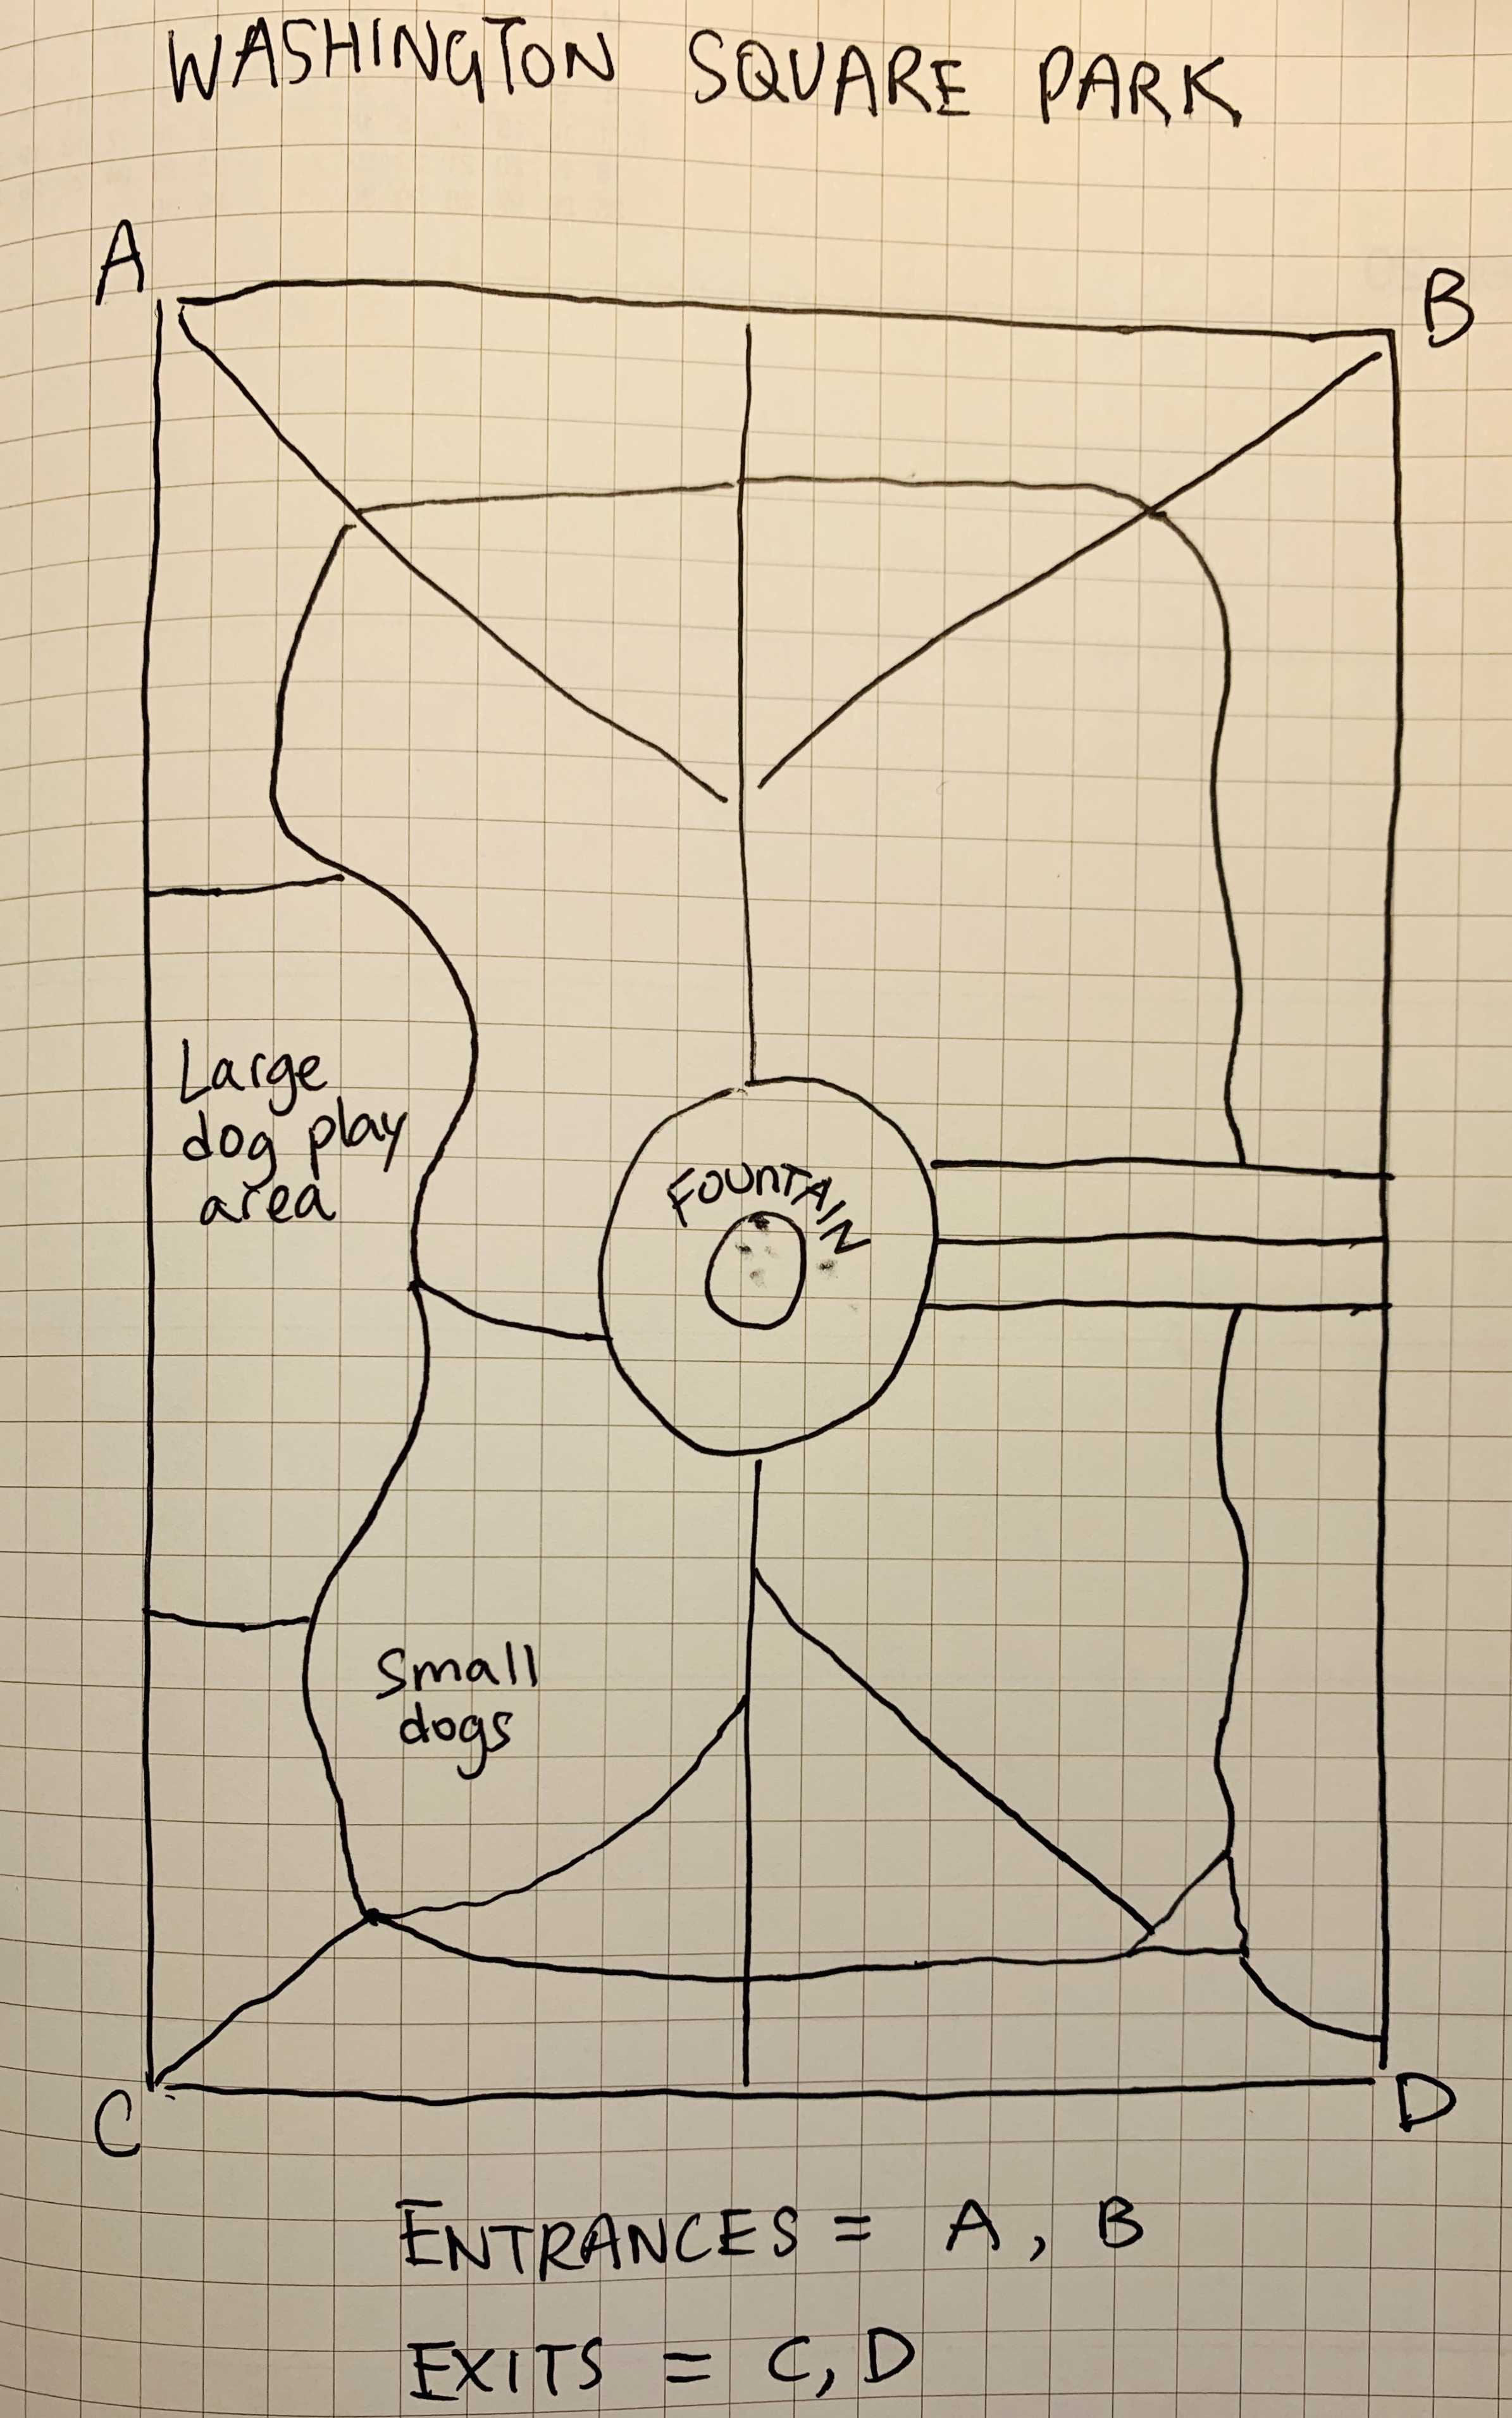 WASHINGTON SQUARE PARK
A
B
Large
dog play
area
FOUNTAIN
Small
dogs
C
D
ENTRANCES = A, B
EXITS = C, D